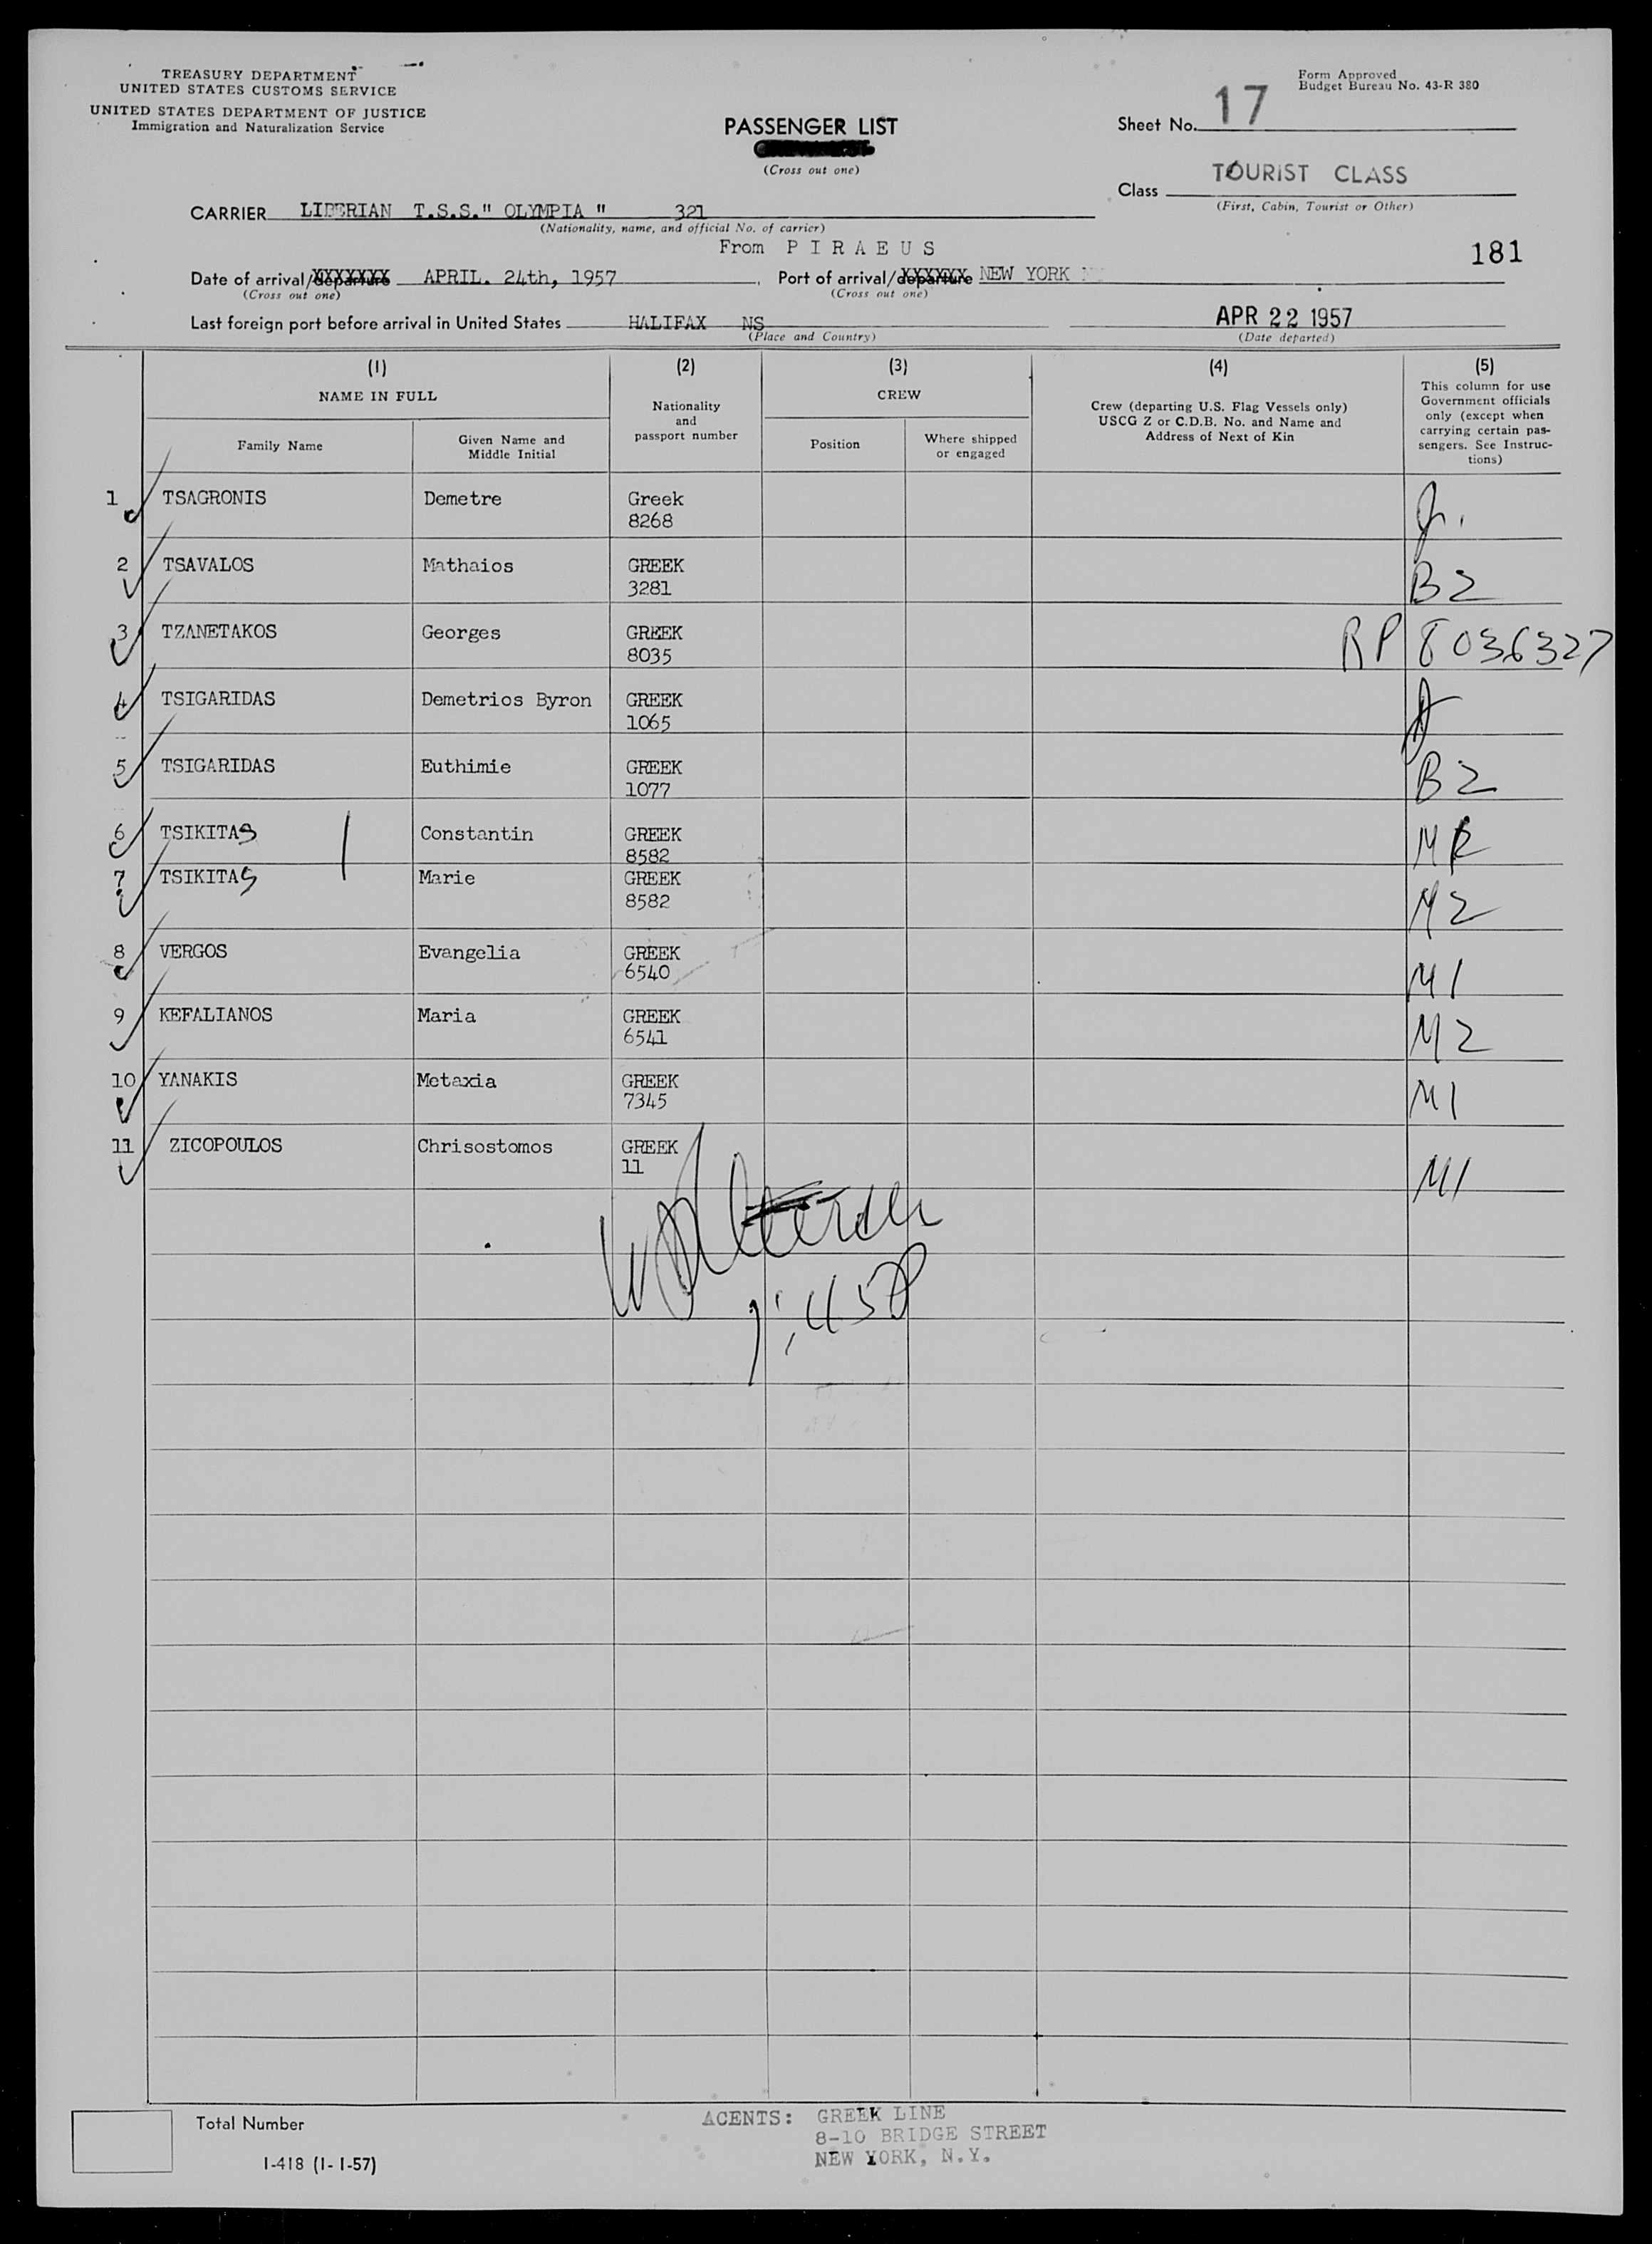 TREASURY DEPARTMENT
UNITED STATES CUSTOMS SERVICE
UNITED STATES DEPARTMENT OF JUSTICE
Immigration and Naturalization Service
PASSENGER LIST
(Cross out one)
Form Approved
Budget Bureau No. 43-R 380
Sheet No. 17
Class TOURIST CLASS
(First, Cabin, Tourist or Other)
CARRIER LIBERIAN T.S.S." OLYMPIA " 321
(Nationality, name, and official No. of carrier)
From PIRAEUS
181
Date of arrival/departure APRIL. 24th, 1957, Port of arrival/departure NEW YORK
(Cross out one) (Cross out one)
Last foreign port before arrival in United States HALIFAX NS APR 22 1957
(Place and Country) (Date departed)
(1) (2) (3) (4) (5)
NAME IN FULL
Family Name
Given Name and
Middle Initial
Nationality
and
passport number
CREW
Position
Where shipped
or engaged
Crew (departing U.S. Flag Vessels only)
USCG Z or C.D.B. No. and Name and
Address of Next of Kin
This column for use
Government officials
only (except when
carrying certain pas-
sengers. See Instruc-
tions)
1 TSAGRONIS Demetre Greek
8268
2 TSAVALOS Mathaios GREEK
3281 B2
3 TZANETAKOS Georges GREEK
8035 RP 8036327
4 TSIGARIDAS Demetrios Byron GREEK
1065
5 TSIGARIDAS Euthimie GREEK
1077 B2
6 TSIKITAS Constantin GREEK
8582
7 TSIKITAS Marie GREEK
8582 M2
8 VERGOS Evangelia GREEK
6540 M1
9 KEFALIANOS Maria GREEK
6541 M2
10 YANAKIS Metaxia GREEK
7345 M1
11 ZICOPOULOS Chrisostomos GREEK
11 M1
Total Number
I-418 (1-1-57)
AGENTS: GREEK LINE
8-10 BRIDGE STREET
NEW YORK, N.Y.